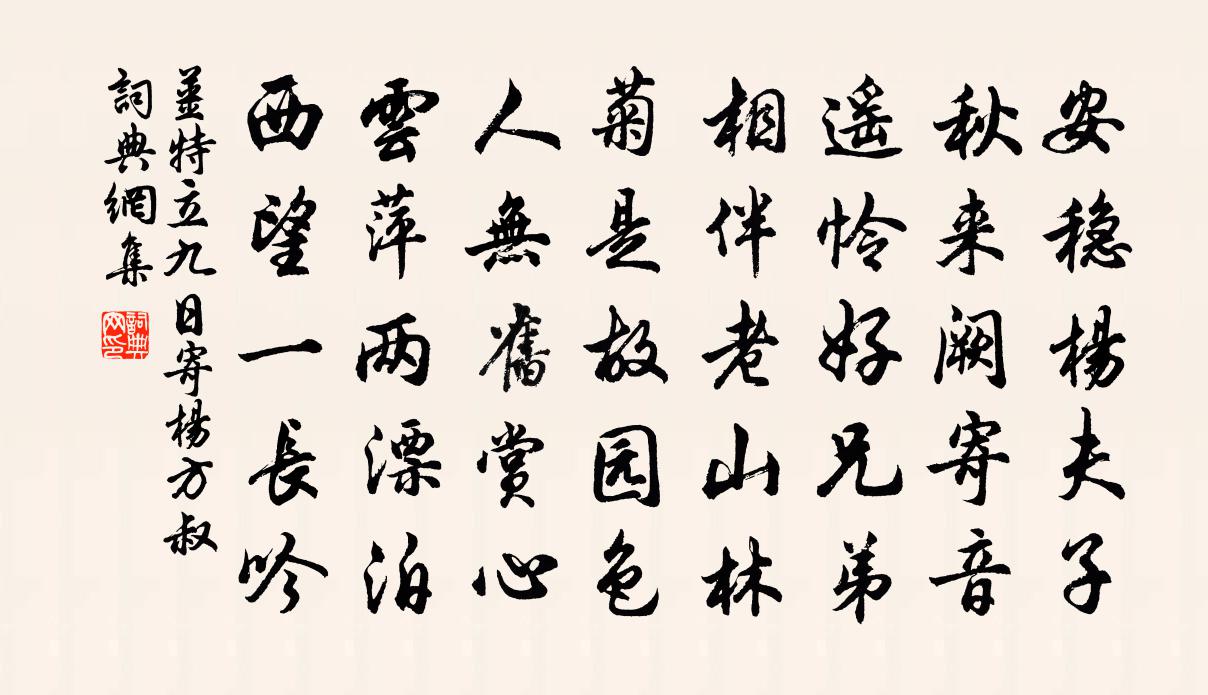 安稳楊夫子
秋来阙寄音
遥怜好兄弟
相伴老山林
菊是故园色
人無舊赏心
雲萍两漂泊
西望一長吟
姜特立九日寄楊方叔
詞典網集
詞典
网印